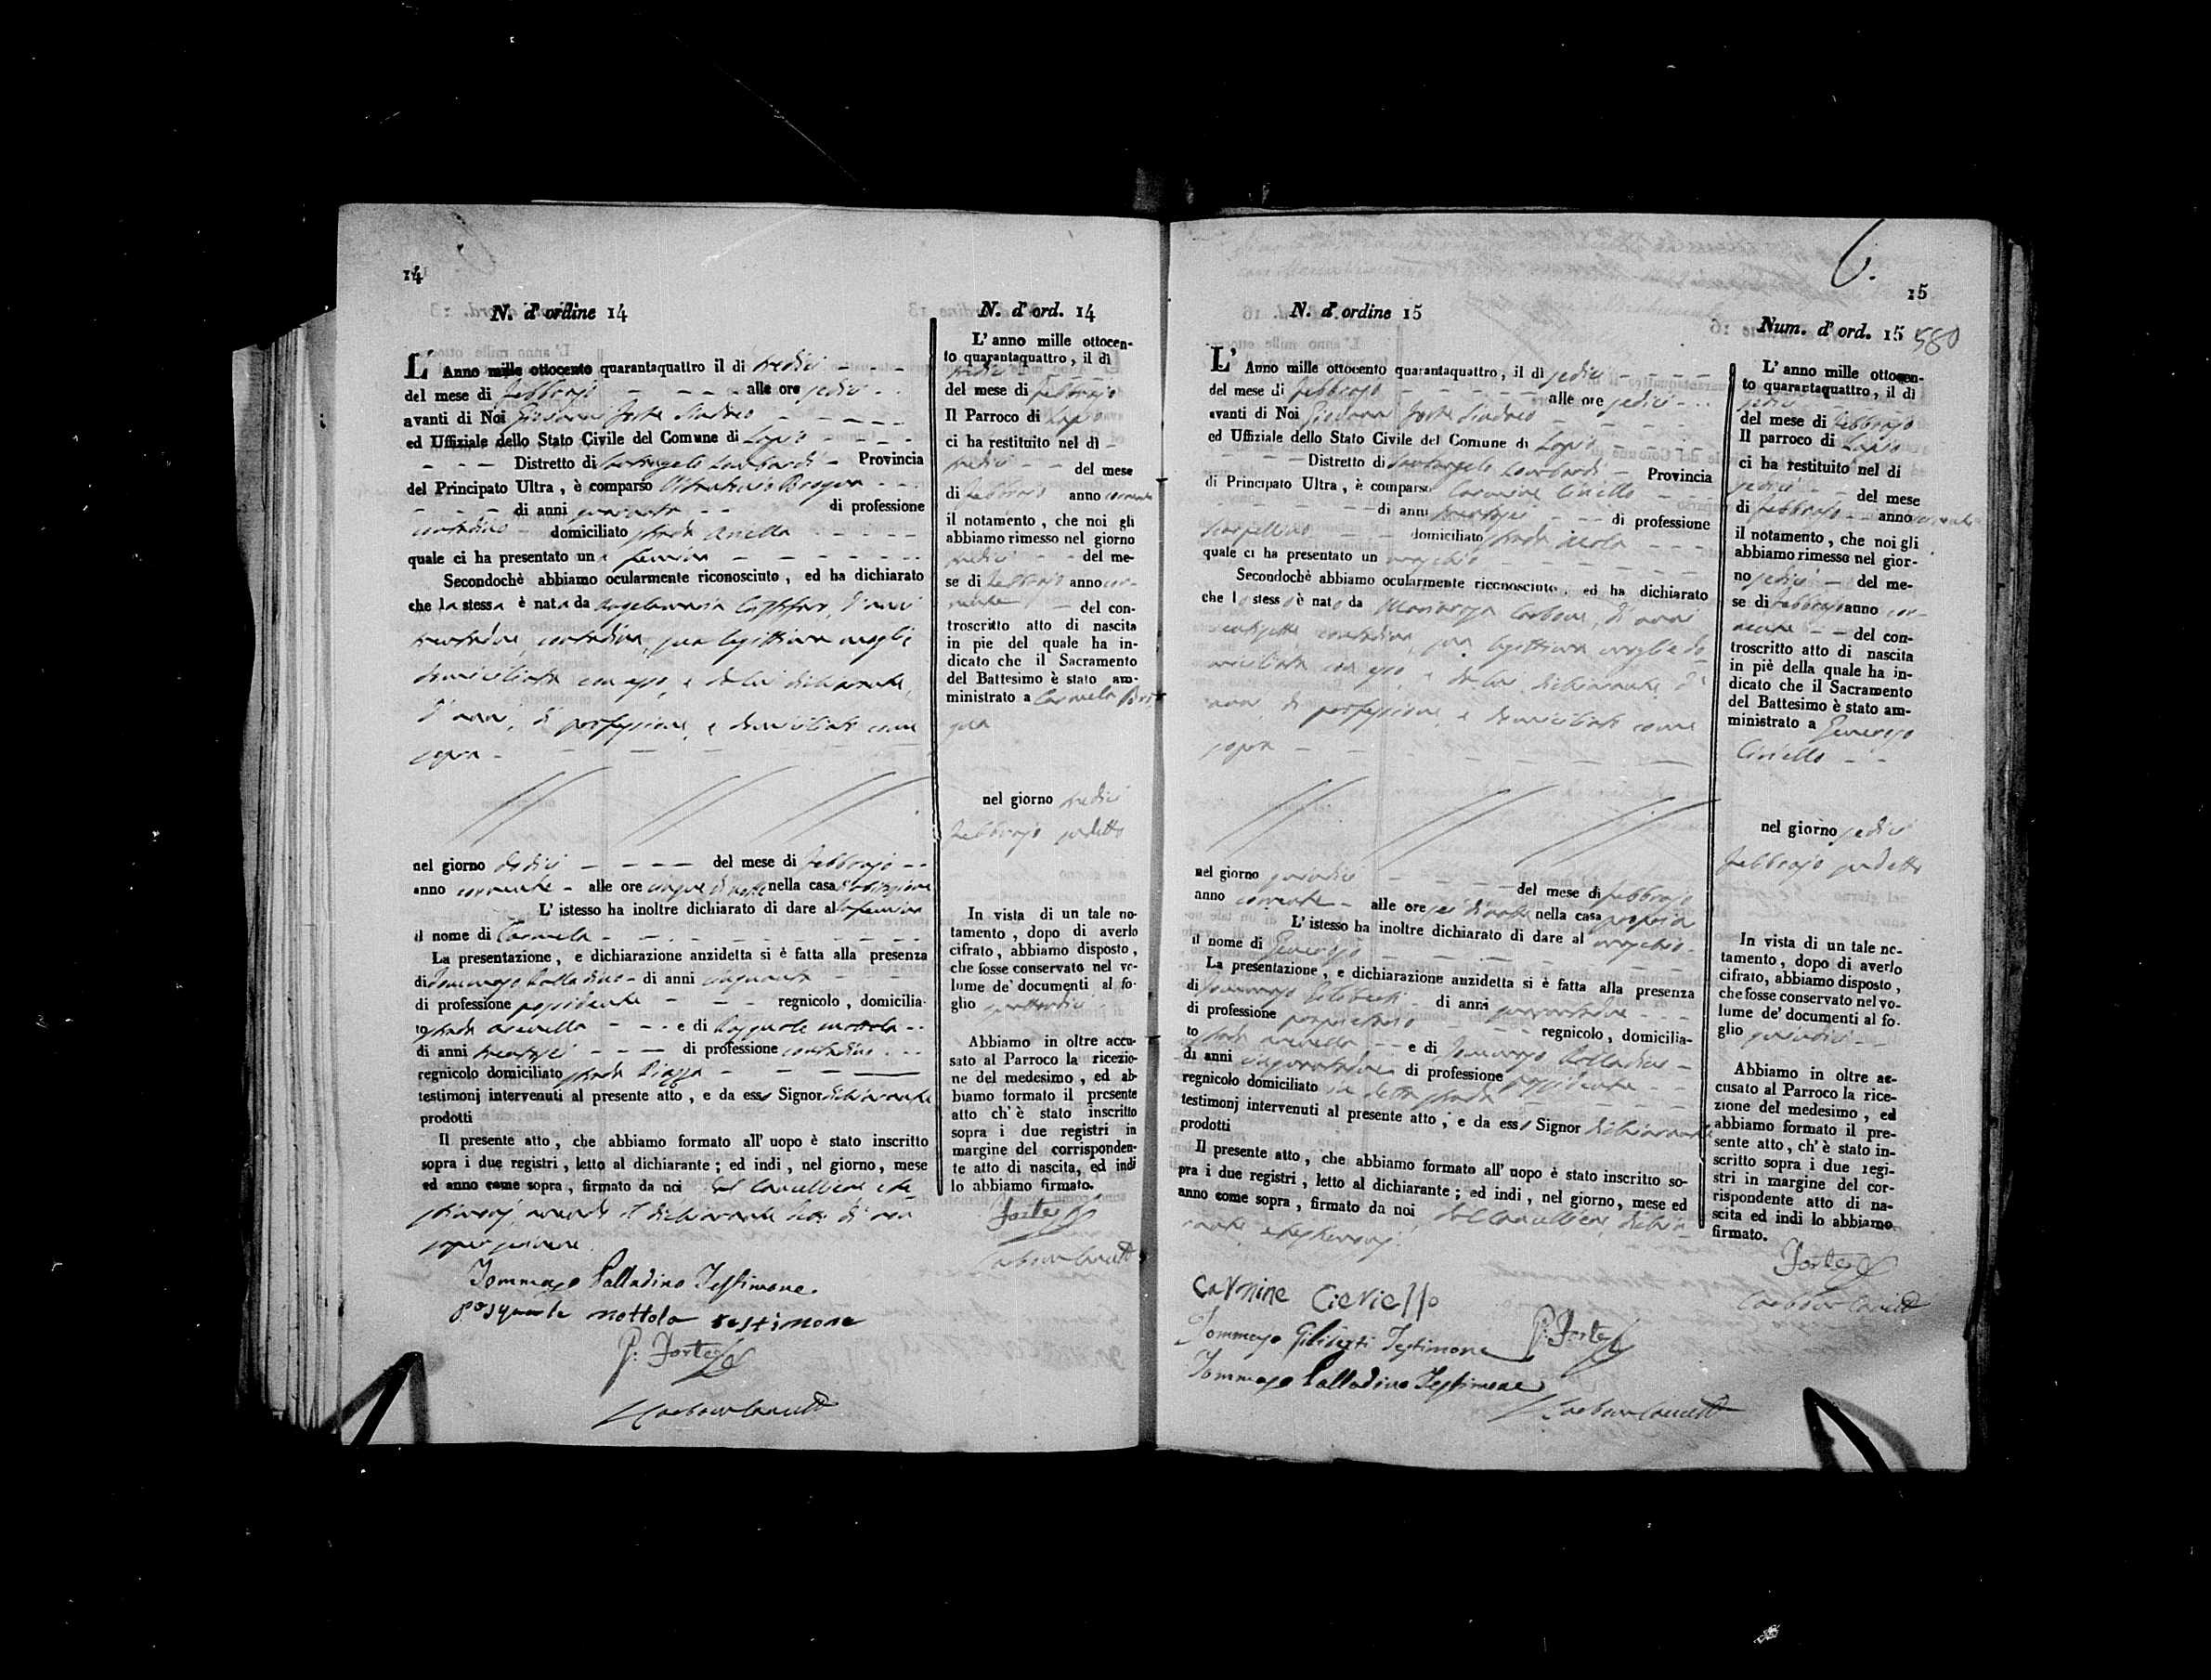 14
N. d' ordine 14
L' Anno mille ottocento quarantaquattro il di tredici
del mese di febbrajo alle ore sedici
avanti di Noi Giovanni Forte Sindaco
ed Uffiziale dello Stato Civile del Comune di Lapio
Distretto di Santangelo Lombardi Provincia
del Principato Ultra, è comparso
di anni quaranta di professione
contadino domiciliato strada
quale ci ha presentato una femina
Secondochè abbiamo ocularmente riconosciuto, ed ha dichiarato
che la stessa è nata da Angelamaria d'anni
contadina, sua legittima moglie
domiciliata con esso, e da lui dichiarante,
d'anni, di professione, e domiciliato come
sopra
nel giorno dodici del mese di febbrajo
anno corrente alle ore cinque di notte nella casa d'abitazione
L' istesso ha inoltre dichiarato di dare alla femina
il nome di Carmela
La presentazione, e dichiarazione anzidetta si è fatta alla presenza
di Tommaso Palladino di anni cinquanta
di professione possidente regnicolo, domicilia-
to strada e di Pasquale Nottola
di anni trentasei di professione contadino
regnicolo domiciliato strada Piazza
testimonj intervenuti al presente atto, e da esso Signor dichiarante
prodotti
Il presente atto, che abbiamo formato all' uopo è stato inscritto
sopra i due registri, letto al dichiarante; ed indi, nel giorno, mese
ed anno come sopra, firmato da noi dal Cancelliere e da
testimonj, avendo il dichiarante detto di non
saper scrivere
Tommaso Palladino Testimone
pasquale nottola testimone
G: Forte
N. d' ord. 14
L' anno mille ottocen-
to quarantaquattro, il dì
tredici
del mese di febbrajo
Il Parroco di Lapio
ci ha restituito nel dì
tredici del mese
di febbrajo anno corrente
il notamento, che noi gli
abbiamo rimesso nel giorno
tredici del me-
se di febbrajo anno cor-
rente del con-
troscritto atto di nascita
in pie del quale ha in-
dicato che il Sacramento
del Battesimo è stato am-
ministrato a Carmela
nel giorno tredici
febbrajo sudetto
In vista di un tale no-
tamento, dopo di averlo
cifrato, abbiamo disposto,
che fosse conservato nel vo-
lume de' documenti al fo-
glio quattordici
Abbiamo in oltre accu-
sato al Parroco la ricezio-
ne del medesimo, ed ab-
biamo formato il presente
atto ch' è stato inscritto
sopra i due registri in
margine del corrisponden-
te atto di nascita, ed indi
lo abbiamo firmato.
Forte
6.
15
N. d' ordine 15
L' Anno mille ottocento quarantaquattro, il dì sedici
del mese di febbrajo alle ore sedici
avanti di Noi Giovanni Forte Sindaco
ed Uffiziale dello Stato Civile del Comune di Lapio
Distretto di Santangelo Lombardi Provincia
di Principato Ultra, è comparso Carmine Ciriello
di anni trentasei di professione
scarpellino domiciliato strada
quale ci ha presentato un maschio
Secondochè abbiamo ocularmente riconosciuto, ed ha dichiarato
che lo stesso è nato da Mariarosa Carbone, di anni
ventisette contadina, sua legittima moglie do-
miciliata con esso, e da lui dichiarante d'
anni di professione, e domiciliato come
sopra
nel giorno quindici del mese di febbrajo
anno corrente alle ore sei di notte nella casa propria
L' istesso ha inoltre dichiarato di dare al maschio
il nome di Generoso
La presentazione, e dichiarazione anzidetta si è fatta alla presenza
di Tommaso Giliberti di anni
di professione proprietario regnicolo, domicilia-
to strada e di Tommaso Palladino
di anni di professione possidente
regnicolo domiciliato in detta strada
testimonj intervenuti al presente atto, e da esso Signor dichiarante
prodotti
Il presente atto, che abbiamo formato all' uopo è stato inscritto so-
pra i due registri, letto al dichiarante; ed indi, nel giorno, mese ed
anno come sopra, firmato da noi dal Cancelliere, dichia-
rante e testimonj.
Carmine Cieriello
Tommaso Giliberti Testimone G: Forte
Tommaso Palladino Testimone
Num. d' ord. 15 580
L' anno mille ottocen-
to quarantaquattro, il dì
sedici
del mese di febbrajo
Il parroco di Lapio
ci ha restituito nel di
sedici del mese
di febbrajo anno corrente
il notamento, che noi gli
abbiamo rimesso nel gior-
no sedici del me-
se di febbrajo anno cor-
rente del con-
troscritto atto di nascita
in piè della quale ha in-
dicato che il Sacramento
del Battesimo è stato am-
ministrato a Generoso
Ciriello
nel giorno sedici
febbrajo sudetto
In vista di un tale no-
tamento, dopo di averlo
cifrato, abbiamo disposto,
che fosse conservato nel vo-
lume de' documenti al fo-
glio quindici
Abbiamo in oltre ac-
cusato al Parroco la rice-
zione del medesimo, ed
abbiamo formato il pre-
sente atto, ch' è stato in-
scritto sopra i due regi-
stri in margine del cor-
rispondente atto di na-
scita ed indi lo abbiamo
firmato.
Forte